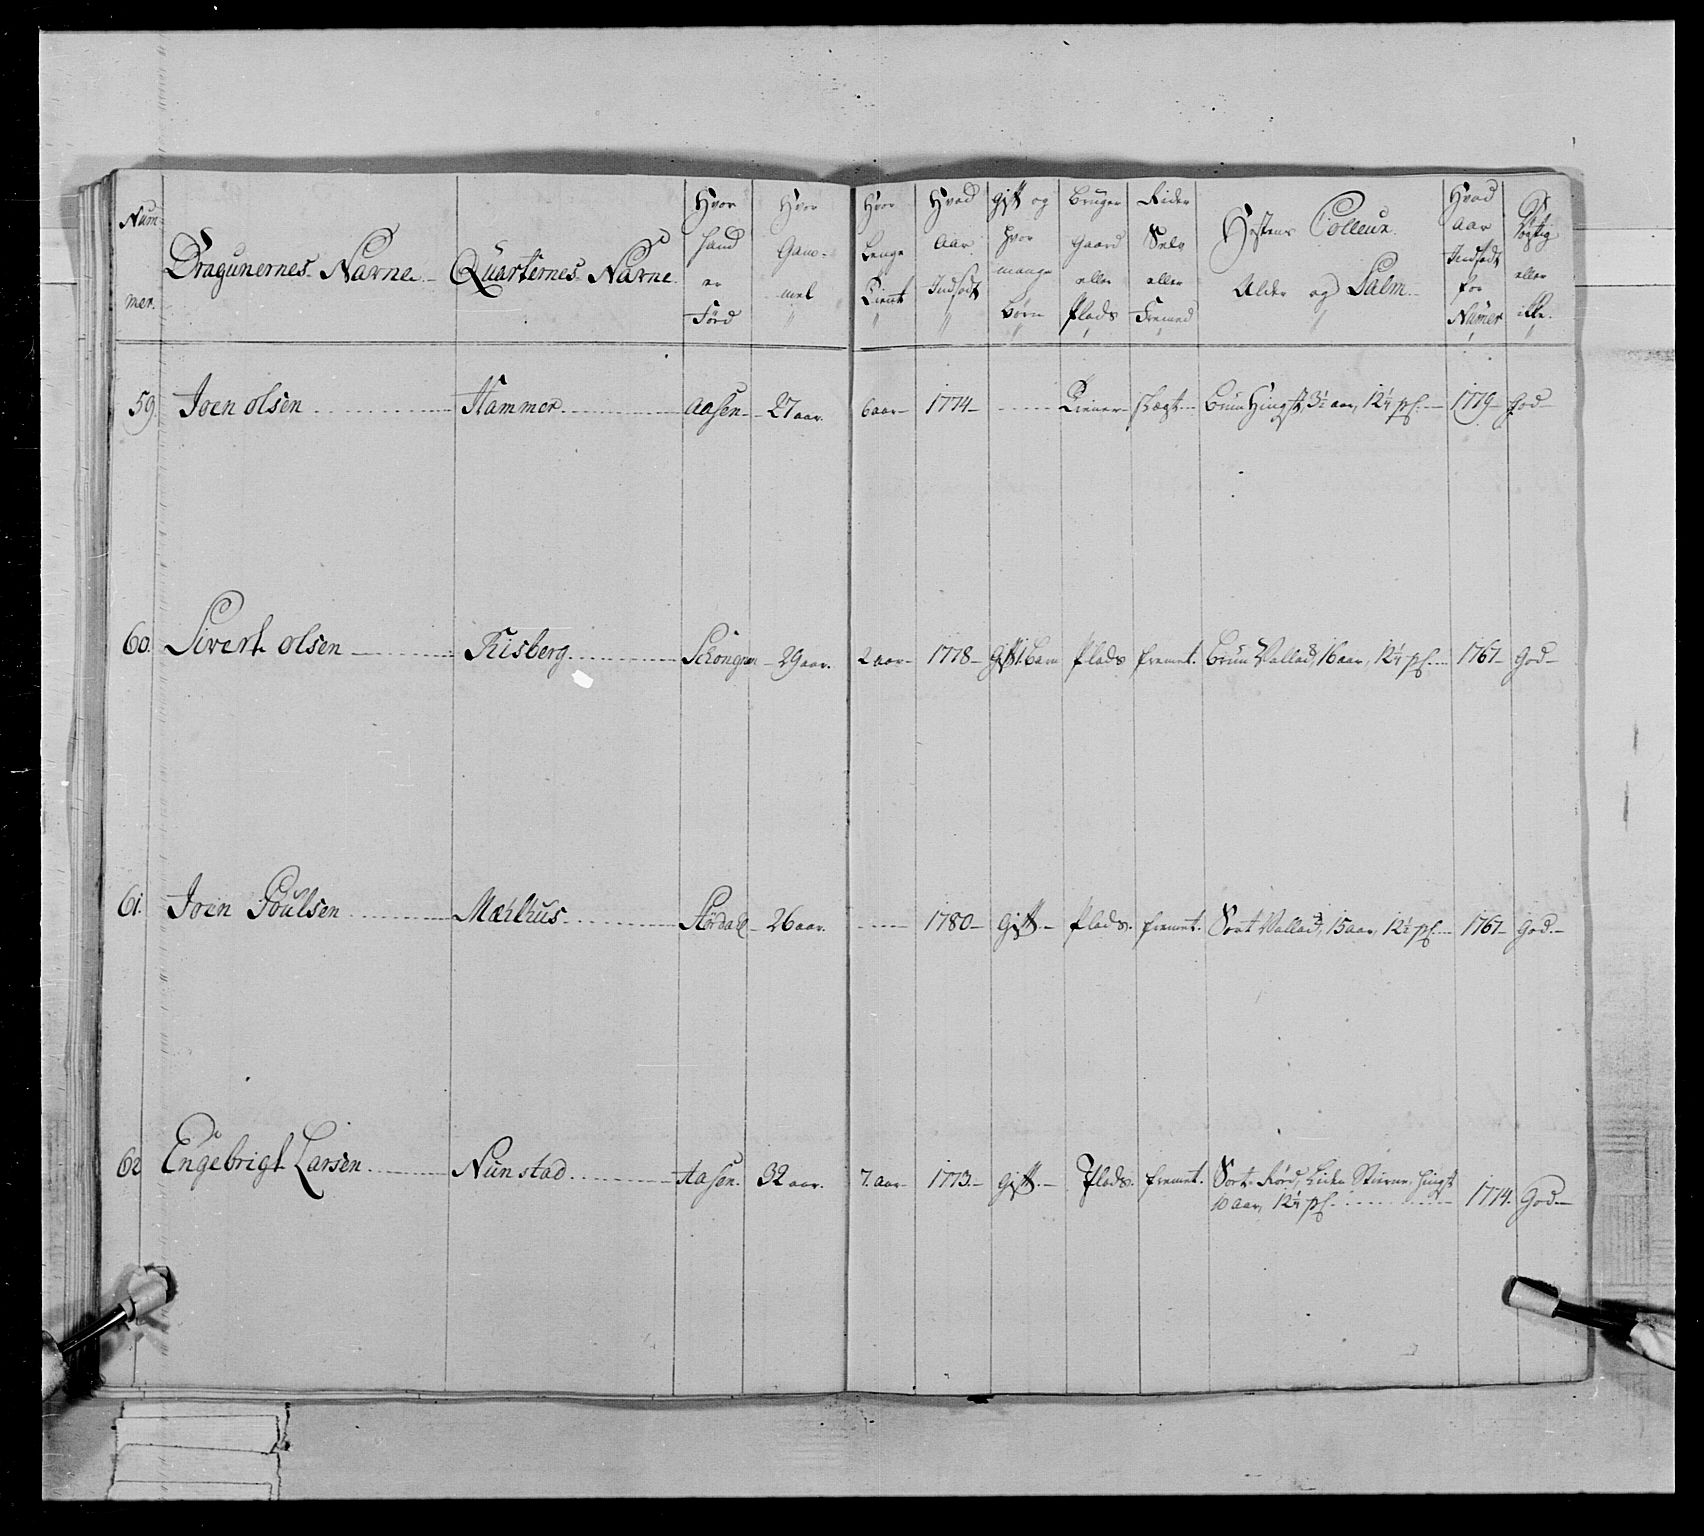 Num- mer. | Dragunernes Navne | Quarternes Navne | Hvor hand er Förd | Hvor Gam- mel | Hvor Lenge Tient | Hvad Aar Indsadt | Gift og hvor mange Børn | Bruger Gaard eller Plads | Rider Selv eller Fremed | Hestens Colleur Alder og Palm | Hvad Aar Indsadt for Numer | Dygtig eller ikke.
59. | Joen olsen | Hammer | Aasen | 27 aar. | 6 aar | 1774 | | Tiener | | brun Hingst, 3½ aar, 12¼ pl. | 1779 | God
60. | Sivert olsen | Risberg | | 29 aar. | 2 aar | 1778 | Gift 1. Barn | Plads | fremet. | brun Vallad, 16 aar, 12¼ pl. | 1767 | God
61. | Joen Poulsen | Mæhlhus | Stördal | 26 aar. | | 1780 | Gift. | Plads. | fremet. | Sort Vallad, 15 aar, 12¼ pl. | 1767 | God.
62 | Engebrigt Larsen | Nunstad | Aasen. | 32 aar. | 7. aar | 1773. | Gift. | Plads. | fremet. | Sort Liden Stierne, hingst
10 aar, 12¼ pl. | 1774. | God